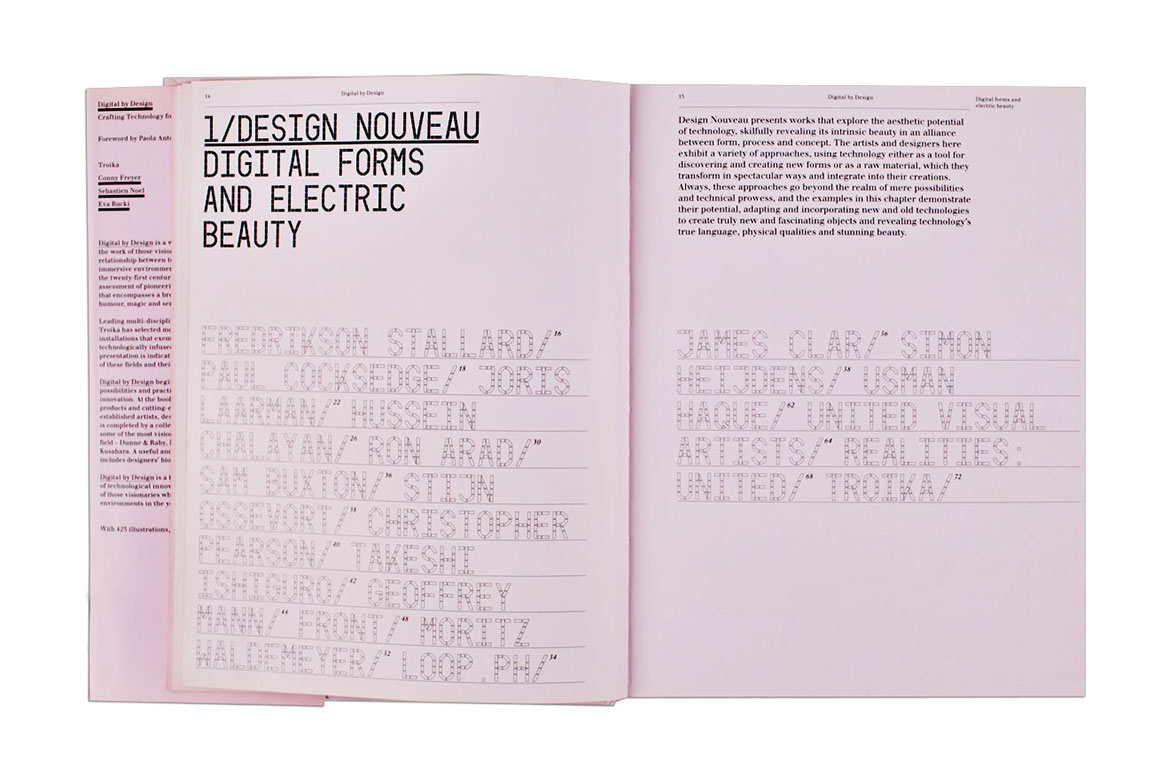 Digital by Design
Crafting Technology fo
Foreword by Paola Ant
Troika
Conny Freyer
Sebastien Noel
Eva Rucki
Digital by Design is a
the work of those visio
relationship between t
immersive environmen
the twenty-first centur
assessment of pioneeri
that encompasses a br
humour, magic and se
Leading multi-discipli
Troika has selected mo
installations that exem
technologically infuse
presentation is indicat
of these fields and thei
Digital by Design begi
possibilities and practi
innovation. At the boo
products and cutting-e
established artists, des
is completed by a colle
some of the most visio
field – Dunne & Raby,
Kusahara. A useful and
includes designers' bio
Digital by Design is a
of technological innov
of those visionaries wh
environments in the
With 425 illustrations,
14
Digital by Design
1/DESIGN NOUVEAU
DIGITAL FORMS
AND ELECTRIC
BEAUTY
FREDRIKSON STALLARD/16
PAUL COCKSEDGE/18 JORIS
LAARMAN/22 HUSSEIN
CHALAYAN/26 RON ARAD/30
SAM BUXTON/36 STIJN
OSSEVORT/38 CHRISTOPHER
PEARSON/40 TAKESHI
ISHIGURO/42 GEOFFREY
MANN/44 FRONT/48 MORITZ
WALDEMEYER/52 LOOP.PH/54
15
Digital by Design
Digital forms and
electric beauty
Design Nouveau presents works that explore the aesthetic potential
of technology, skilfully revealing its intrinsic beauty in an alliance
between form, process and concept. The artists and designers here
exhibit a variety of approaches, using technology either as a tool for
discovering and creating new forms or as a raw material, which they
transform in spectacular ways and integrate into their creations.
Always, these approaches go beyond the realm of mere possibilities
and technical prowess, and the examples in this chapter demonstrate
their potential, adapting and incorporating new and old technologies
to create truly new and fascinating objects and revealing technology's
true language, physical qualities and stunning beauty.
JAMES CLAR/56 SIMON
HEIJDENS/58 USMAN
HAQUE/62 UNITED VISUAL
ARTISTS/64 REALITIES:
UNITED/68 TROIKA/72